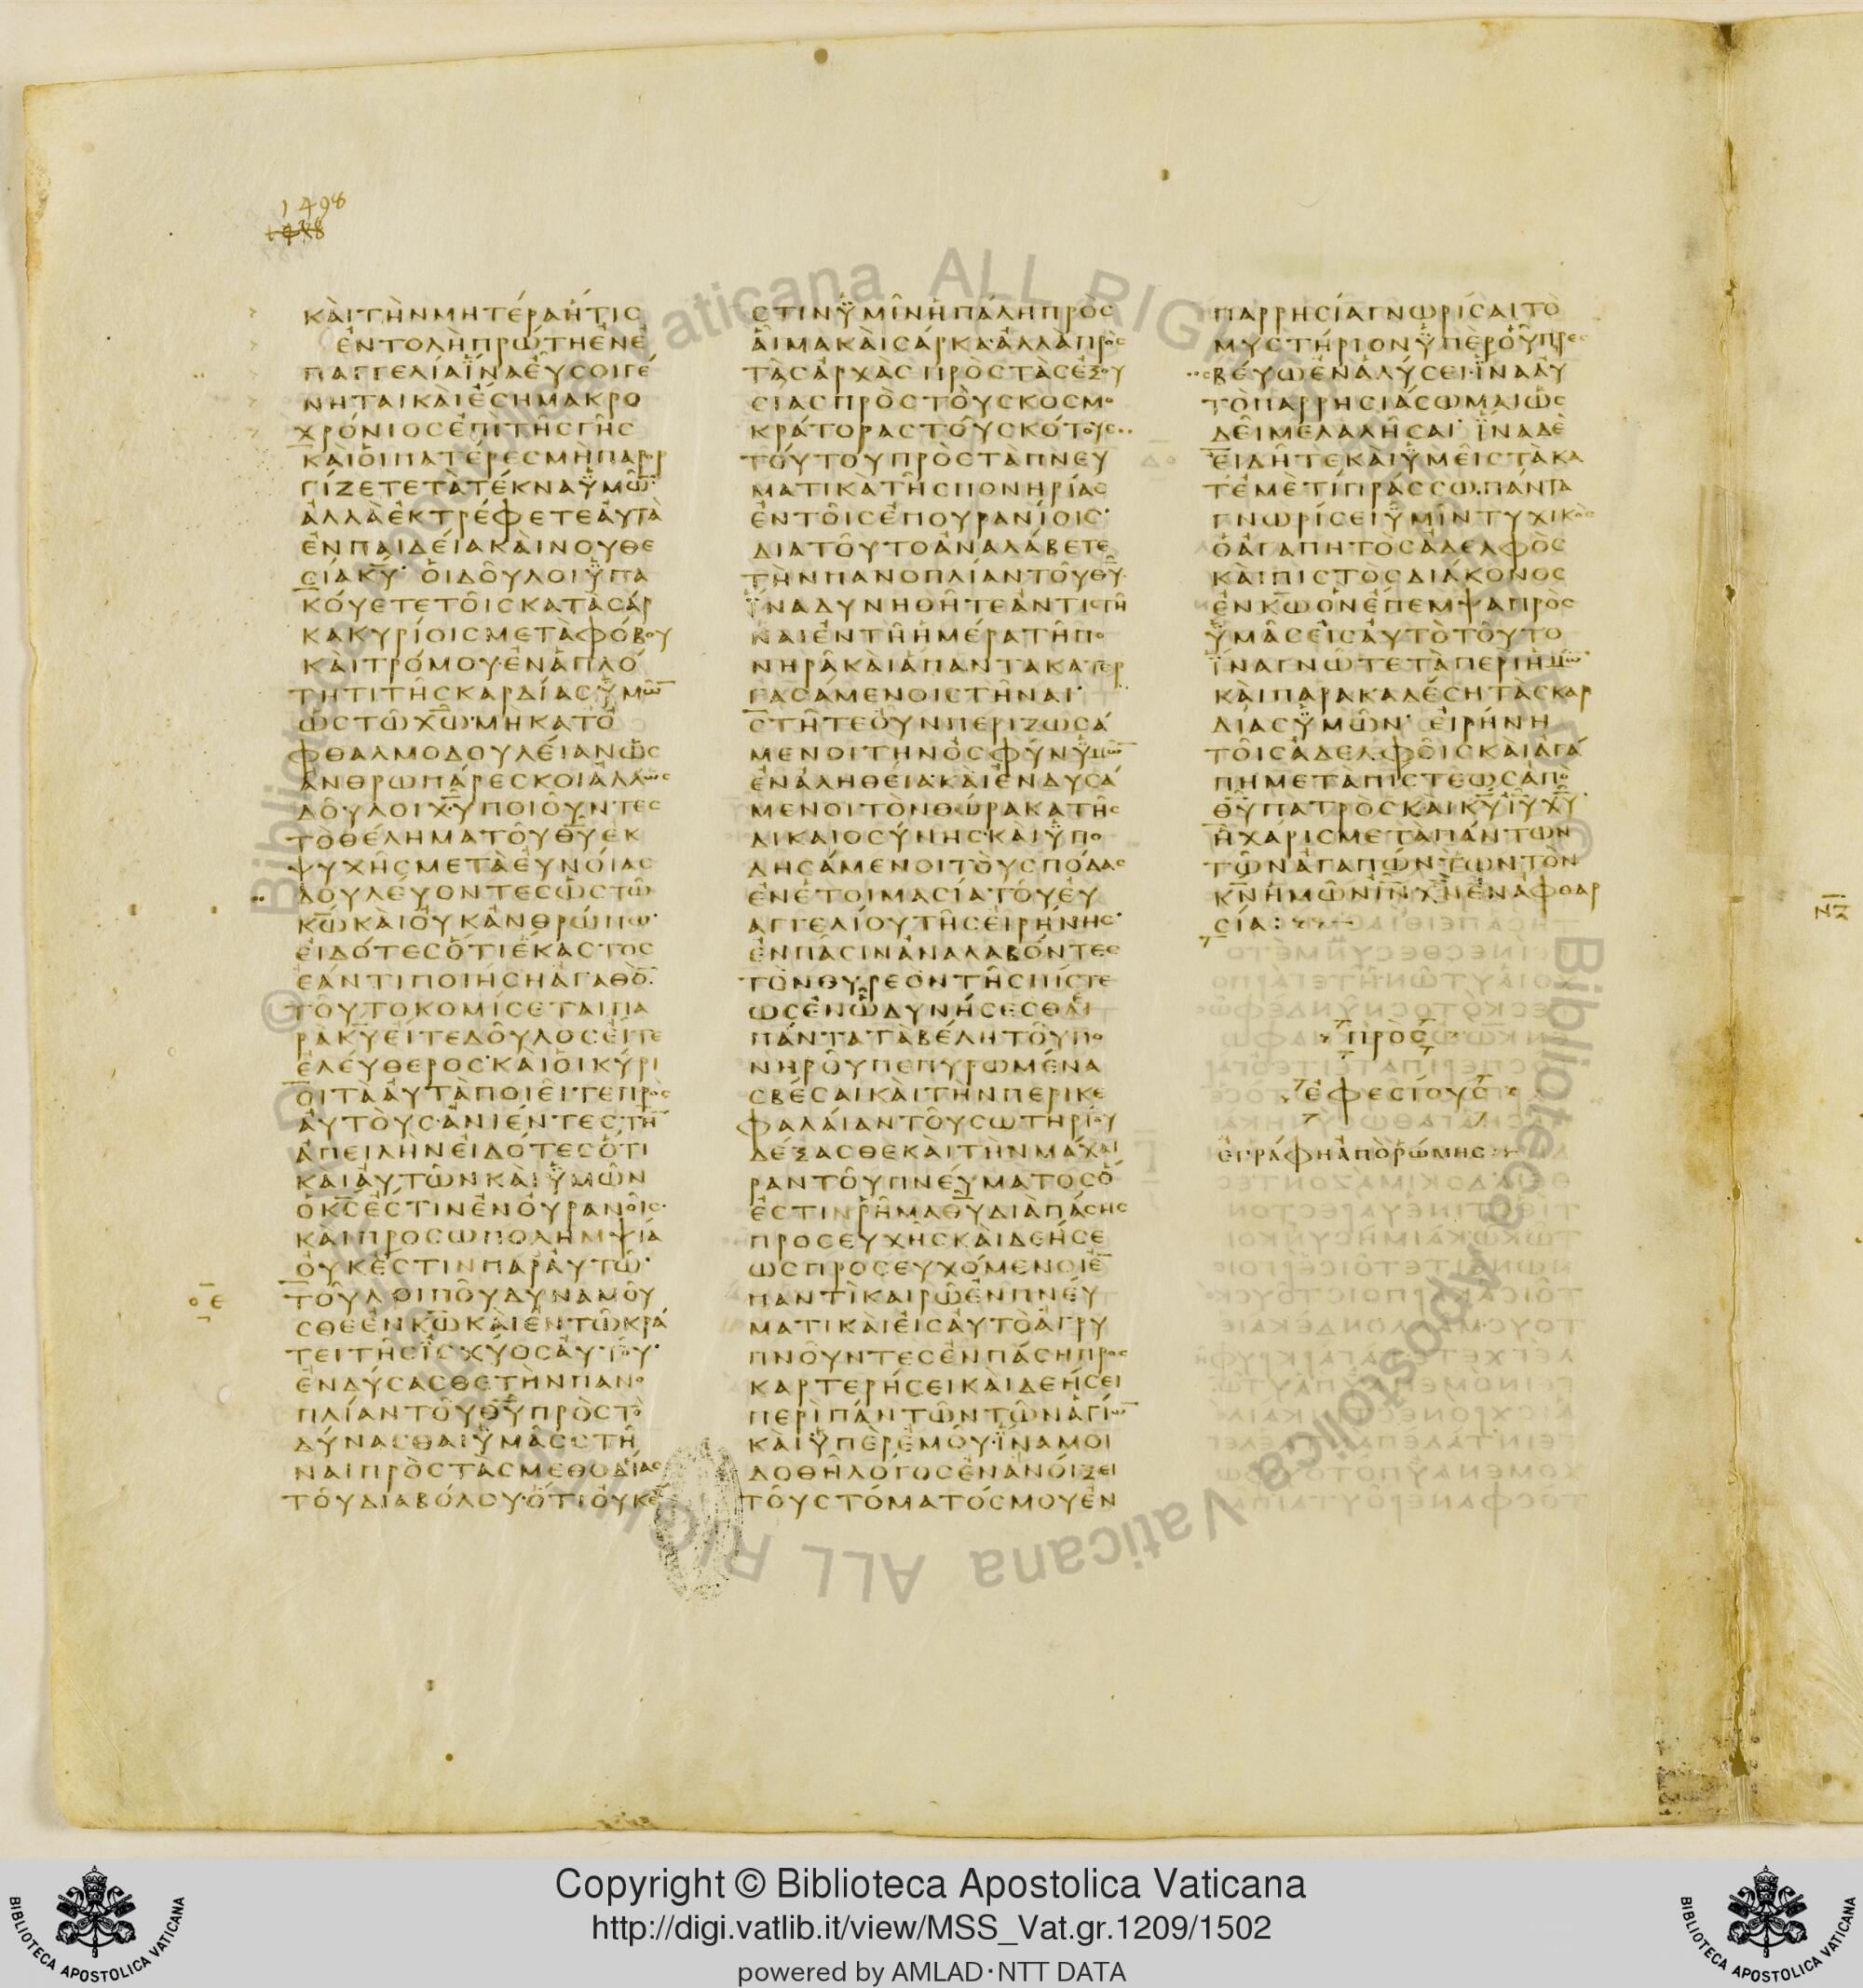 1498
ΚΑΙΤΗΝΜΗΤΕΡΑΗΤΙΣ
ΕΝΤΟΛΗΠΡΩΤΗΕΝΕ
ΠΑΓΓΕΛΙΑΪΝΑΕΥΣΟΙΓΕ
ΝΗΤΑΙΚΑΙΕΣΗΜΑΚΡΟ
ΧΡΟΝΙΟΣΕΠΙΤΗΣΓΗΣ
ΚΑΙΟΙΠΑΤΕΡΕΣΜΗΠΑΡΟΡ
ΓΙΖΕΤΕΤΑΤΕΚΝΑΫΜΩ̅
ΑΛΛΑΕΚΤΡΕΦΕΤΕΑΥΤΑ
ΕΝΠΑΙΔΕΙΑΚΑΙΝΟΥΘΕ
ΣΙΑΚ̅Υ̅· ΟΙΔΟΥΛΟΙΫΠΑ
ΚΟΥΕΤΕΤΟΙΣΚΑΤΑΣΑΡ
ΚΑΚΥΡΙΟΙΣΜΕΤΑΦΟΒΟΥ
ΚΑΙΤΡΟΜΟΥ·ΕΝΑΠΛΟ
ΤΗΤΙΤΗΣΚΑΡΔΙΑΣΫΜΩ̅
ΩΣΤΩΧ̅Ω̅·ΜΗΚΑΤΟ
ΦΘΑΛΜΟΔΟΥΛΕΙΑΝΩΣ
ΑΝΘΡΩΠΑΡΕΣΚΟΙΑΛΛΩΣ
ΔΟΥΛΟΙΧ̅Υ̅ΠΟΙΟΥΝΤΕΣ
ΤΟΘΕΛΗΜΑΤΟΥΘ̅Υ̅ΕΚ
ΨΥΧΗΣΜΕΤΑΕΥΝΟΙΑΣ
ΔΟΥΛΕΥΟΝΤΕΣΩΣΤΩ
Κ̅Ω̅ΚΑΙΟΥΚΑΝΘΡΩΠΩ·
ΕΙΔΟΤΕΣΟΤΙΕΚΑΣΤΟΣ
ΕΑΝΤΙΠΟΙΗΣΗΑΓΑΘΟ̅·
ΤΟΥΤΟΚΟΜΙΣΕΤΑΙΠΑ
ΡΑΚ̅Υ̅ΕΙΤΕΔΟΥΛΟΣΕΙΤΕ
ΕΛΕΥΘΕΡΟΣ·ΚΑΙΟΙΚΥΡΙ
ΟΙΤΑΑΥΤΑΠΟΙΕΙΤΕΠΡΟΣ
ΑΥΤΟΥΣ·ΑΝΙΕΝΤΕΣΤΗ̅
ΑΠΕΙΛΗΝΕΙΔΟΤΕΣΟΤΙ
ΚΑΙΑΥΤΩΝΚΑΙΫΜΩΝ
ΟΚ̅Σ̅ΕΣΤΙΝΕΝΟΥΡΑΝΟΙΣ·
ΚΑΙΠΡΟΣΩΠΟΛΗΜΨΙΑ
ΟΥΚΕΣΤΙΝΠΑΡΑΥΤΩ·
ΤΟΥΛΟΙΠΟΥΔΥΝΑΜΟΥ
ΣΘΕΕΝΚ̅Ω̅ΚΑΙΕΝΤΩΚΡΑ
ΤΕΙΤΗΣΪΣΧΥΟΣΑΥΤΟΥ·
ΕΝΔΥΣΑΣΘΕΤΗΝΠΑΝΟ
ΠΛΙΑΝΤΟΥΘ̅Υ̅ΠΡΟΣΤΟ
ΔΥΝΑΣΘΑΙΫΜΑΣΣΤΗ
ΝΑΙΠΡΟΣΤΑΣΜΕΘΟΔΙΑΣ
ΤΟΥΔΙΑΒΟΛΟΥ·ΟΤΙΟΥΚΕ
ΣΤΙΝΫΜΙΝΗΠΑΛΗΠΡΟΣ
ΑΙΜΑΚΑΙΣΑΡΚΑ·ΑΛΛΑΠΡΟΣ
ΤΑΣΑΡΧΑΣΠΡΟΣΤΑΣΕΞΟΥ
ΣΙΑΣΠΡΟΣΤΟΥΣΚΟΣΜΟ
ΚΡΑΤΟΡΑΣΤΟΥΣΚΟΤΟΥΣ
ΤΟΥΤΟΥΠΡΟΣΤΑΠΝΕΥ
ΜΑΤΙΚΑΤΗΣΠΟΝΗΡΙΑΣ
ΕΝΤΟΙΣΕΠΟΥΡΑΝΙΟΙΣ·
ΔΙΑΤΟΥΤΟΑΝΑΛΑΒΕΤΕ
ΤΗΝΠΑΝΟΠΛΙΑΝΤΟΥΘ̅Υ̅·
ΪΝΑΔΥΝΗΘΗΤΕΑΝΤΙΣΤΗ
ΝΑΙΕΝΤΗΗΜΕΡΑΤΗΠΟ
ΝΗΡΑΚΑΙΑΠΑΝΤΑΚΑΤΕΡ
ΓΑΣΑΜΕΝΟΙΣΤΗΝΑΙ·
ΣΤΗΤΕΟΥΝΠΕΡΙΖΩΣΑ
ΜΕΝΟΙΤΗΝΟΣΦΥΝΫΜΩ̅
ΕΝΑΛΗΘΕΙΑ·ΚΑΙΕΝΔΥΣΑ
ΜΕΝΟΙΤΟΝΘΩΡΑΚΑΤΗΣ
ΔΙΚΑΙΟΣΥΝΗΣ·ΚΑΙΫΠΟ
ΔΗΣΑΜΕΝΟΙΤΟΥΣΠΟΔΑΣ
ΕΝΕΤΟΙΜΑΣΙΑΤΟΥΕΥ
ΑΓΓΕΛΙΟΥΤΗΣΕΙΡΗΝΗΣ·
ΕΝΠΑΣΙΝΑΝΑΛΑΒΟΝΤΕΣ
ΤΟΝΘΥΡΕΟΝΤΗΣΠΙΣΤΕ
ΩΣΕΝΩΔΥΝΗΣΕΣΘΑΙ
ΠΑΝΤΑΤΑΒΕΛΗΤΟΥΠΟ
ΝΗΡΟΥΠΕΠΥΡΩΜΕΝΑ
ΣΒΕΣΑΙΚΑΙΤΗΝΠΕΡΙΚΕ
ΦΑΛΑΙΑΝΤΟΥΣΩΤΗΡΙΟΥ
ΔΕΞΑΣΘΕΚΑΙΤΗΝΜΑΧΑΙ
ΡΑΝΤΟΥΠΝΕΥΜΑΤΟΣΟ
ΕΣΤΙΝΡΗΜΑΘ̅Υ̅ΔΙΑΠΑΣΗΣ
ΠΡΟΣΕΥΧΗΣΚΑΙΔΕΗΣΕ
ΩΣΠΡΟΣΕΥΧΟΜΕΝΟΙΕ̅
ΠΑΝΤΙΚΑΙΡΩΕΝΠΝΕΥ
ΜΑΤΙΚΑΙΕΙΣΑΥΤΟΑΓΡΥ
ΠΝΟΥΝΤΕΣΕΝΠΑΣΗΠΡΟΣ
ΚΑΡΤΕΡΗΣΕΙΚΑΙΔΕΗΣΕΙ
ΠΕΡΙΠΑΝΤΩΝΤΩΝΑΓΙΩ̅
ΚΑΙΫΠΕΡΕΜΟΥ·ΪΝΑΜΟΙ
ΔΟΘΗΛΟΓΟΣΕΝΑΝΟΙΞΕΙ
ΤΟΥΣΤΟΜΑΤΟΣΜΟΥΕΝ
ΠΑΡΡΗΣΙΑΓΝΩΡΙΣΑΙΤΟ
ΜΥΣΤΗΡΙΟΝΫΠΕΡΟΥΠΡΕΣ
ΒΕΥΩΕΝΑΛΥΣΕΙ·ΪΝΑΑΥ
ΤΟΠΑΡΡΗΣΙΑΣΩΜΑΙΩΣ
ΔΕΙΜΕΛΑΛΗΣΑΙ· ΪΝΑΔΕ
ΕΙΔΗΤΕΚΑΙΫΜΕΙΣΤΑΚΑ
ΤΕΜΕΤΙΠΡΑΣΣΩ·ΠΑΝΤΑ
ΓΝΩΡΙΣΕΙΫΜΙΝΤΥΧΙΚΟΣ
ΟΑΓΑΠΗΤΟΣΑΔΕΛΦΟΣ
ΚΑΙΠΙΣΤΟΣΔΙΑΚΟΝΟΣ
ΕΝΚ̅Ω̅ΟΝΕΠΕΜΨΑΠΡΟΣ
ΫΜΑΣΕΙΣΑΥΤΟΤΟΥΤΟ
ΪΝΑΓΝΩΤΕΤΑΠΕΡΙΗΜΩ̅
ΚΑΙΠΑΡΑΚΑΛΕΣΗΤΑΣΚΑΡ
ΔΙΑΣΫΜΩΝ· ΕΙΡΗΝΗ
ΤΟΙΣΑΔΕΛΦΟΙΣΚΑΙΑΓΑ
ΠΗΜΕΤΑΠΙΣΤΕΩΣΑΠΟ
Θ̅Υ̅ΠΑΤΡΟΣΚΑΙΚ̅Υ̅Ι̅Υ̅Χ̅Υ̅·
ΗΧΑΡΙΣΜΕΤΑΠΑΝΤΩΝ
ΤΩΝΑΓΑΠΩΝΤΩΝΤΟΝ
Κ̅Ν̅ΗΜΩΝΙ̅Ν̅Χ̅Ν̅ΕΝΑΦΘΑΡ
ΣΙΑ:
ΠΡΟΣ
ΕΦΕΣΙΟΥΣ
ΕΓΡΑΦΗΑΠΟΡΩΜΗΣ
Copyright © Biblioteca Apostolica Vaticana
http://digi.vatlib.it/view/MSS_Vat.gr.1209/1502
powered by AMLAD·NTT DATA